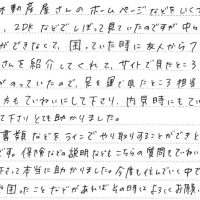 不動産屋さんのホームページなどをいくつ
、2DKなどでしぼって見ていたのですが中々
ができなくて、困っていた時に友人からア
さんを紹介してくれて、サイトで見たところ
がのっていたので、足を運で見たところ担当
方もていねいにして下さり、内見時にもてい
て下さりとても助かりました。
書類などをラインでやり取りすることができと
です。保険などの説明などもこちらの質問もていねい
下さって本当に助かりました。今後も住んでいく中で
や困ったことなどがあればその時にはよろしくお願い